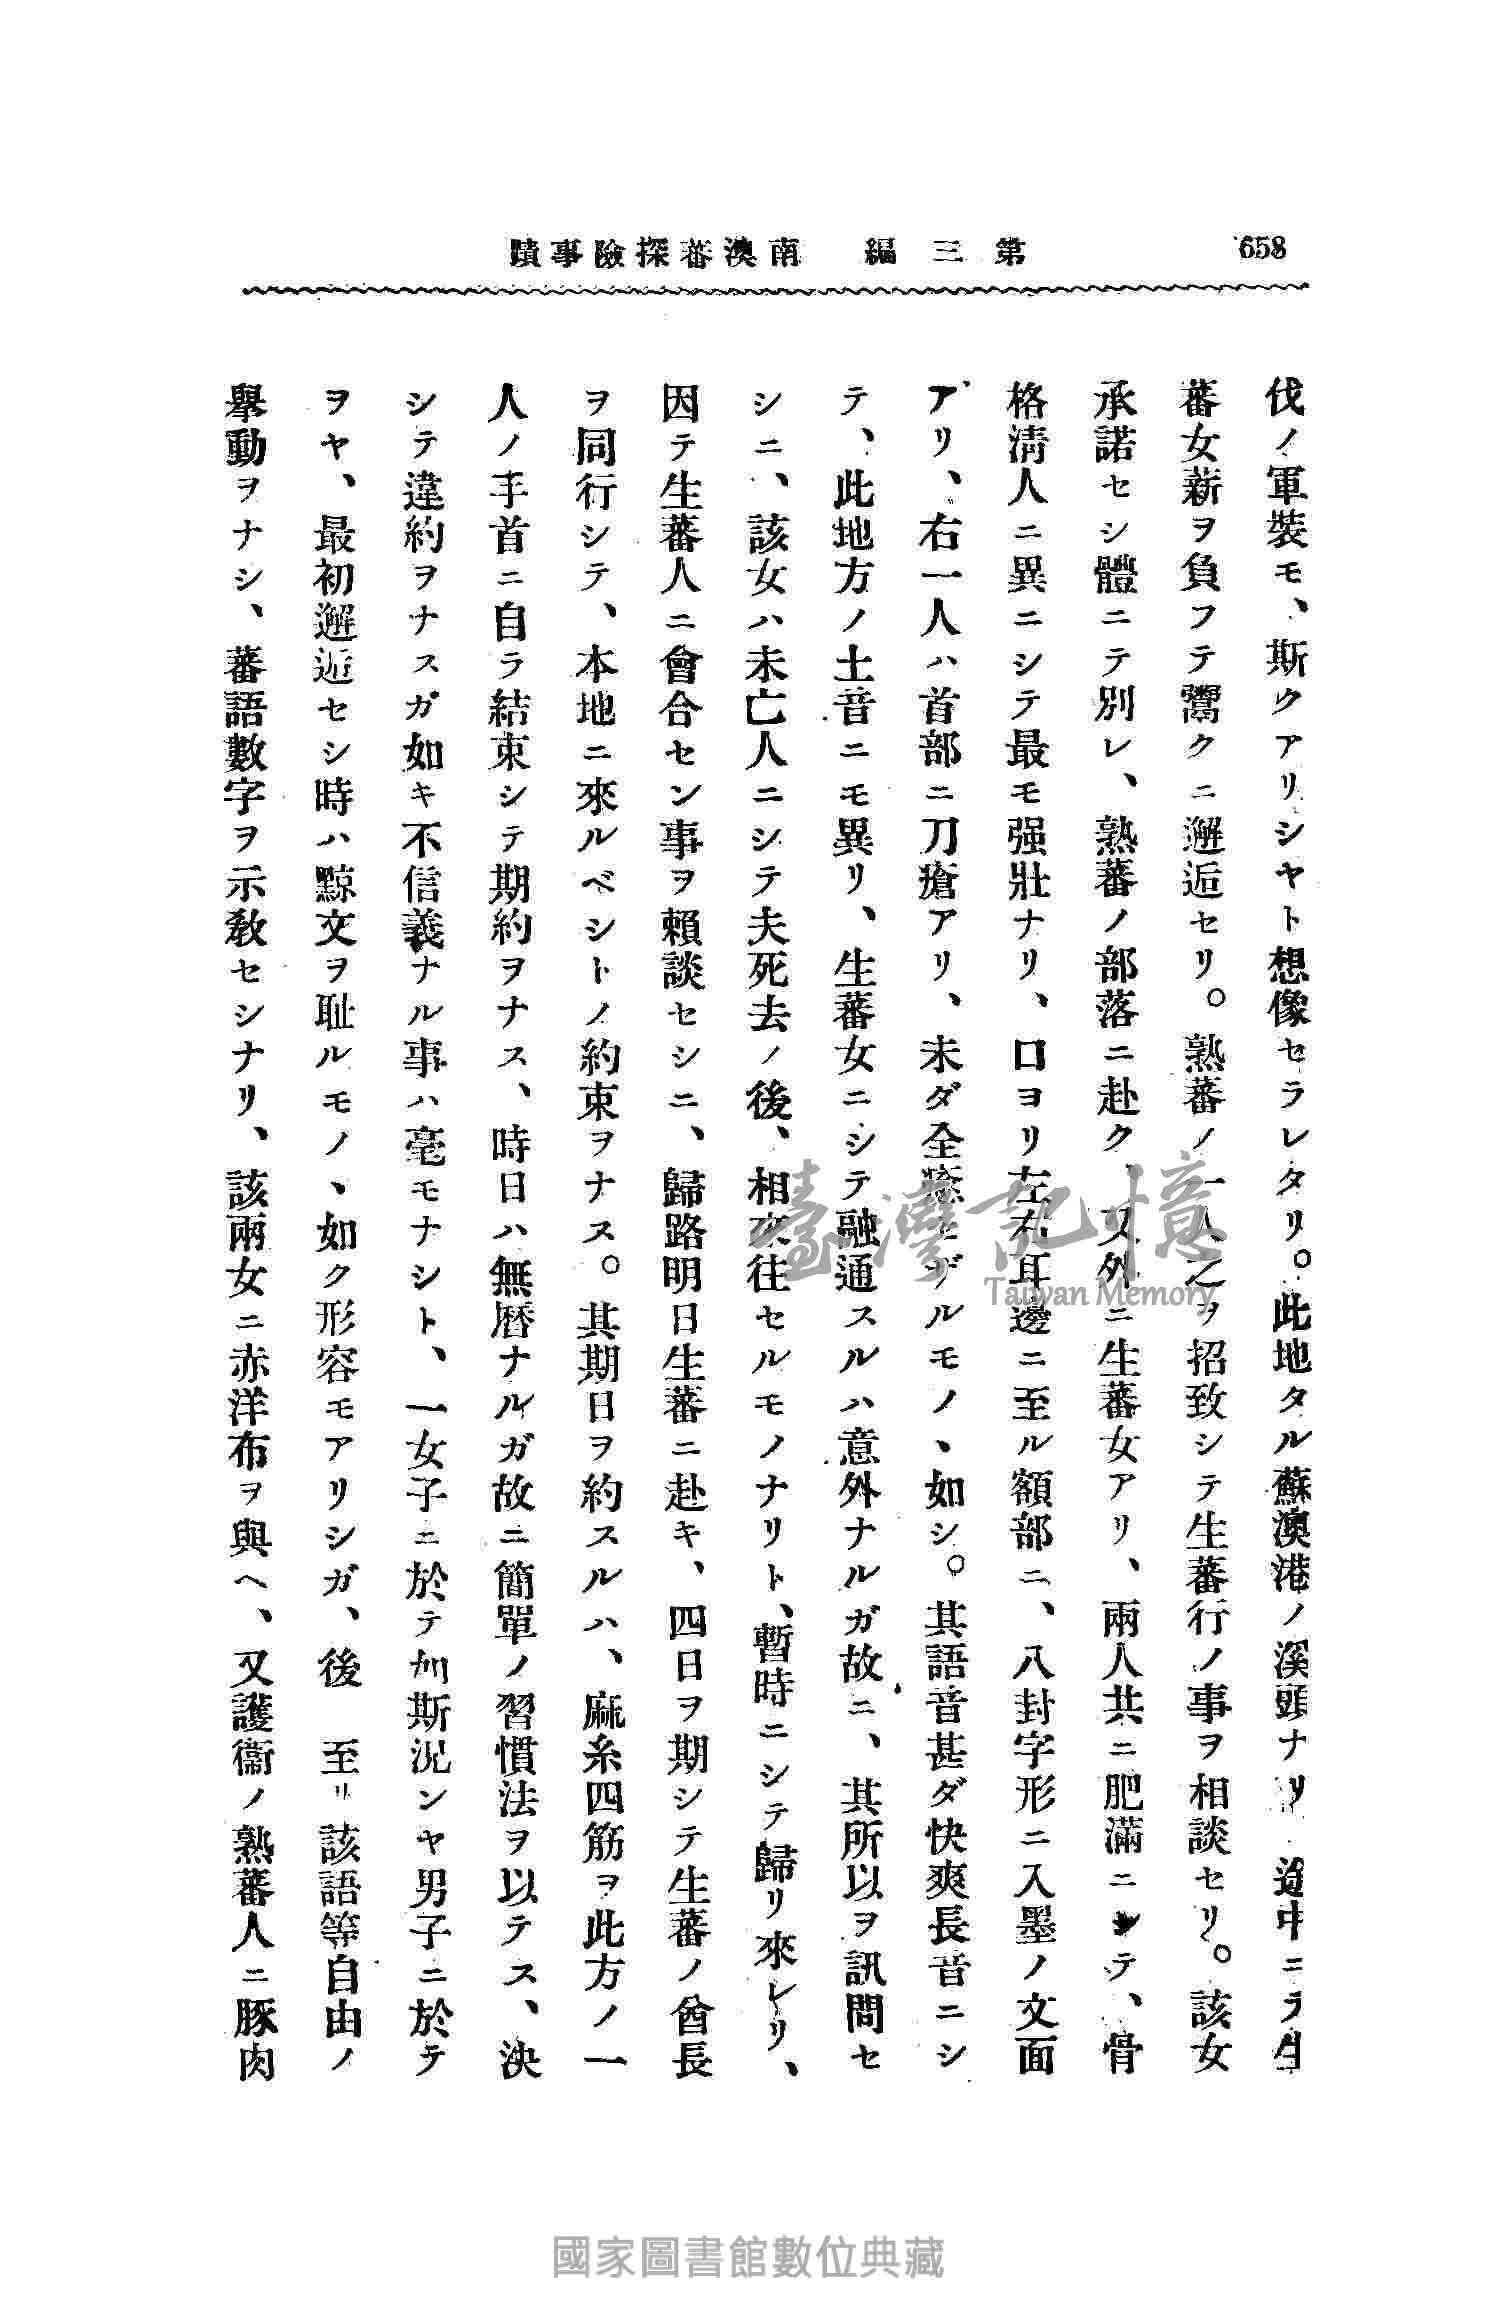 658
第三編　南澳蕃探險事蹟
伐ノ軍裝モ、斯クアリシヤト想像セラレタリ。此地タル蘇澳港ノ溪頭ナリ　途中ニテ生
蕃女薪ヲ負フテ鬻クニ邂逅セリ。熟蕃ノ一人之ヲ招致シテ生蕃行ノ事ヲ相談セリ。該女
承諾セシ體ニテ別レ、熟蕃ノ部落ニ赴ク、又外ニ生蕃女アリ、兩人共ニ肥滿ニシテ、骨
格淸人ニ異ニシテ最モ强壯ナリ、口ヨリ左右耳邊ニ至ル額部ニ、八封字形ニ入墨ノ文面
アリ、右一人ハ首部ニ刀瘡アリ、未ダ全癒セザルモノヽ如シ。其語音甚ダ快爽長音ニシ
テ、此地方ノ土音ニモ異リ、生蕃女ニシテ融通スルハ意外ナルガ故ニ、其所以ヲ訊問セ
シニ、該女ハ未亡人ニシテ夫死去ノ後、相來往セルモノナリト、暫時ニシテ歸リ來レリ、
因テ生蕃人ニ會合セン事ヲ賴談セシニ、歸路明日生蕃ニ赴キ、四日ヲ期シテ生蕃ノ酋長
ヲ同行シテ、本地ニ來ルベシトノ約束ヲナス。其期日ヲ約スルハ、麻糸四筋ヲ此方ノ一
人ノ手首ニ自ラ結束シテ期約ヲナス、時日ハ無曆ナルガ故ニ簡單ノ習慣法ヲ以テス、決
シテ違約ヲナスガ如キ不信義ナル事ハ毫モナシト、一女子ニ於テ如斯況ンヤ男子ニ於テ
ヲヤ、最初邂逅セシ時ハ黥文ヲ耻ルモノヽ如ク形容モアリシガ、後　至リ該語等自由ノ
擧動ヲナシ、蕃語數字ヲ示敎セシナリ、該兩女ニ赤洋布ヲ與ヘ、又護衞ノ熟蕃人ニ豚肉
臺灣記憶
Taiwan Memory
國家圖書館數位典藏